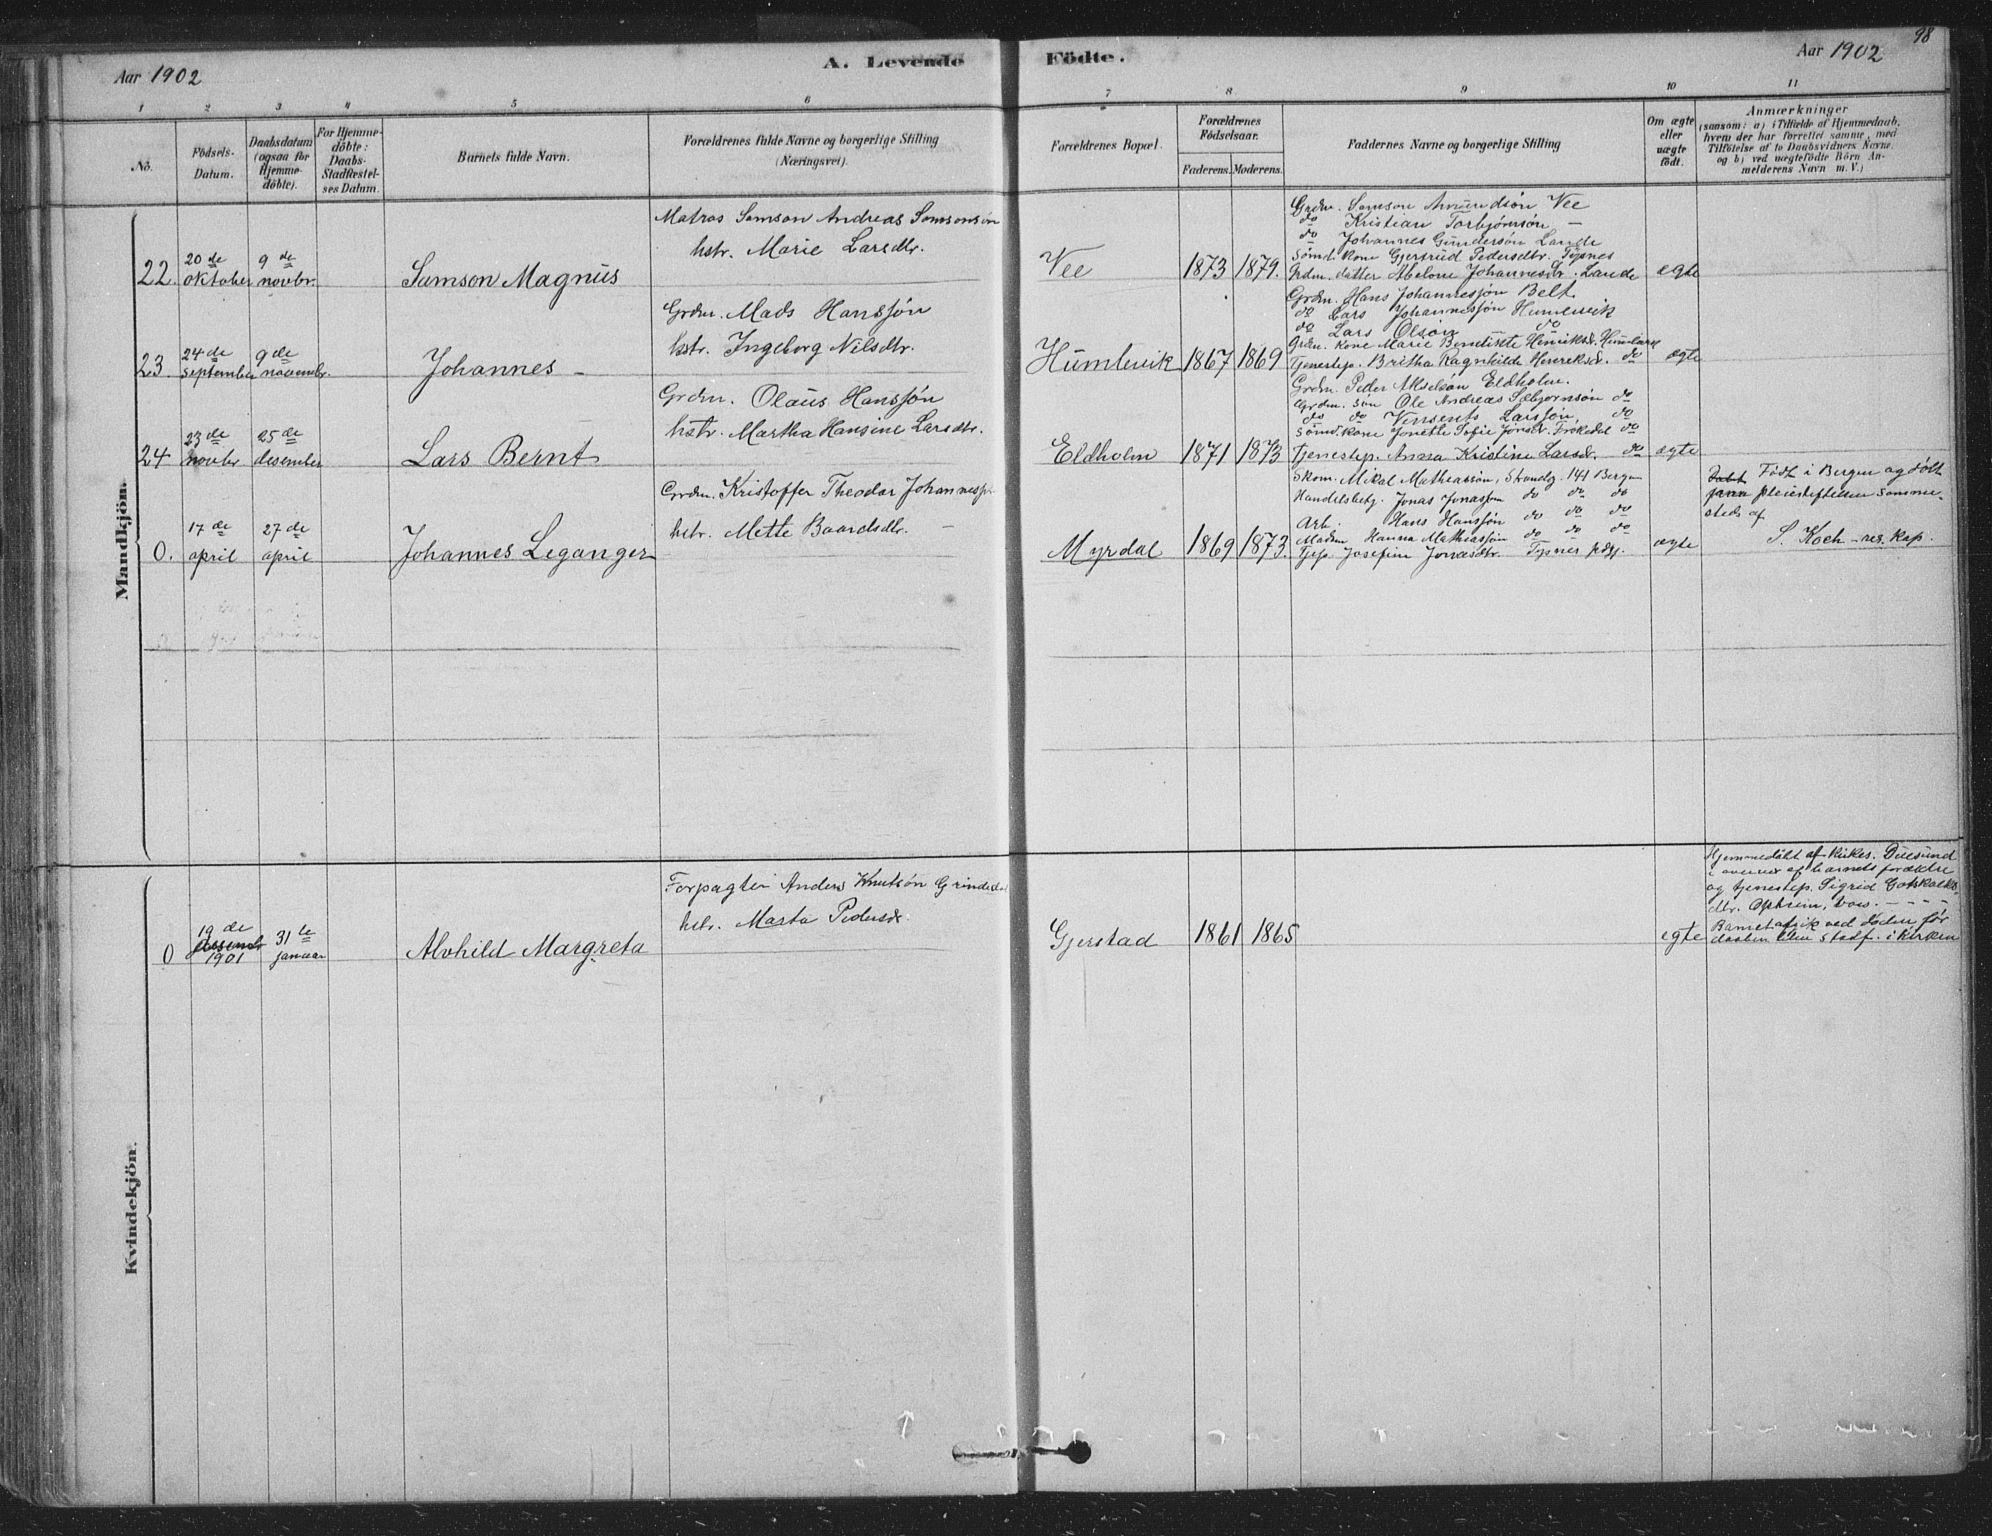 Aar 1902
A. Levende Födte.
Aar 1902
98
1
2
3
4
5
6
7
8
9
10
11
No.
Födsels-Datum.
Daabsdatum (ogsaa for Hjemmedöbte).
For Hjemmedöbte: Daabs-Stadfæstelses Datum.
Barnets fulde Navn.
Forældrenes fulde Navne og borgerlige Stilling
(Næringsvei).
Forældrenes Bopæl.
Forældrenes Födselsaar.
Faderens.
Moderens.
Faddernes Navne og borgerlige Stilling
Om ægte eller uægte födt.
Anmærkninger
(saasom: a) i Tilfælde af Hjemmedaab,
hvem der har forrettet samme, med
Tilföielse af to Daabsvidners Navne,
og b) ved uægtefödte Börn An-
melderens Navn m. V.)
Mandkjön.
22.
20de oktober
9de novbr.
Samson Magnus
Matros Samson Andreas Samsonsøn
hstr. Marie Larsdtr.
Vee
1873
1879.
Grdm. Samson Amundsön Vee
do Kristian Torbjørnsøn —
do Johannes Gundersön Lande
Sömd. kone Gjertrud Pedersdtr. Tysnes
Grdm. datter Johannesdr. Lande
ægte
23.
24de september
9de novembr.
Johannes —
Grdm. Mads Hansjón
hstr. Ingeborg Nilsdtr.
Humlevik
1867
1869
Grdm. Hans Johannesjön Belt
do Lars Johannesjön Humlevik
do Lars Olsön do
Grdm. kone Marie Henriksdr.
Tjenestep. Britha Ragnhilde Henriksdr. do
ægte
24
23de novbr
25de desember
Lars Bernt
Grdm. Olaus Hansjón
hstr. Martha Hansine Larsdtr.
Eldholm
1871
1873
Grdm. Peder Akselsøn Eldholm.
Grdm. sön Ole Andreas Sæbjornsön do
do do Larsjón do
Sömd. kone Jonette Sofie do
Tjenestep. Anna Kristine Larsdr. do
ægte
0.
17de april
27de april
Johannes Leganger
Grdm. Kristoffer Theodor
hstr. Mette Baardsdtr. —
Myrdal
1869
1873.
Skom. Mikal Mathiassön, Strandg. 141 Bergen
Handelsbetj. Jonas Jonasson do do do
Arb. Hans Hansjón do do do
Madm Hanna Mathiassön do do do
Josefine Jonasdtr. Tysnes pdgj.
ægte
Født i Bergen og døbt
pleiestiftelsen samme-
steds af
S. Koch — res. kap.
Kvindekjön.
0
19de desembr 1901
31te januar
Alvhild Margreta
Forpagter Anders Knutsön Grindedal
hstr. Marta Pedersdr.
Gjerstad
1861
1865
egte
Hjemmedöbt af kirkes. Duesund
i overvær af barnets forældre
og tjenestep. Sigrid
dtr. Opheim, Vos. - - - -
Barnet afgik ved døden før
daaben blev stadf. i kirken